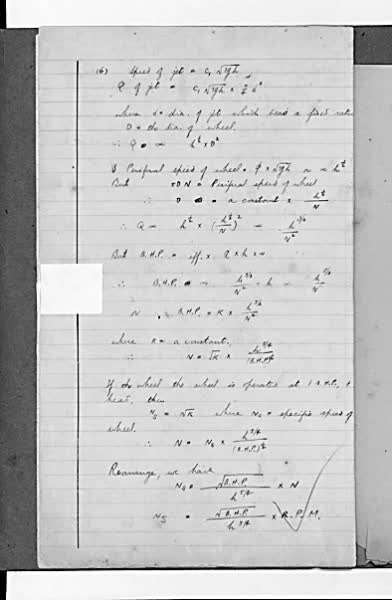 (6) Speed of jet = C₁ √2gh
Q of jet = C₁ √2gh × π/4 d²
where d = dia. of jet which bears a fixed ratio
D = dia. of wheel.
∴ Q ∝ h^½ × D²
Peripheral speed of wheel = φ × √2gh ∝ h^½
But πDN = Peripheral speed of wheel
∴ D = a constant × h^½/N
∴ Q ∝ h^½ × (h^½/N)² ∝ h^3/2/N²
But B.H.P. = eff. × Q × h × w
∴ B.H.P. ∝ h^3/2/N² × h ∝ h^5/2/N²
B.H.P. = K × h^5/2/N²
where K = a constant.
∴ N = √K × h^5/4/(B.H.P.)^½
If the wheel is operated at 1 B.H.P.,
head, then
Ns = √K where Ns = specific speed of
wheel.
∴ N = Ns × h^5/4/(B.H.P.)^½
Rearrange, we have
Ns = √B.H.P./h^5/4 × N
Ns = √B.H.P./h^5/4 × R.P.M.